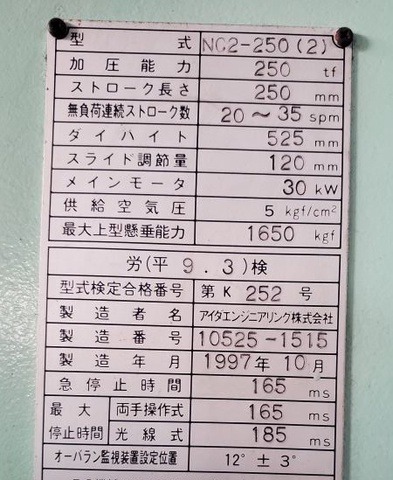 型 式 NC2-250(2)
加圧能力 250 tf
ストローク長さ 250 mm
無負荷連続ストローク数 20～35 spm
ダイハイト 525 mm
スライド調節量 120 mm
メインモータ 30 kW
供給空気圧 5 kgf/cm²
最大上型懸垂能力 1650 kgf
労(平 9.3)検
型式検定合格番号 第K 252 号
製造者名 アイダエンジニアリング株式会社
製造番号 10525-1515
製造年月 1997年 10月
急停止時間 165 ms
最大 両手操作式 165 ms
停止時間 光線式 185 ms
オーバラン監視装置設定位置 12°±3°